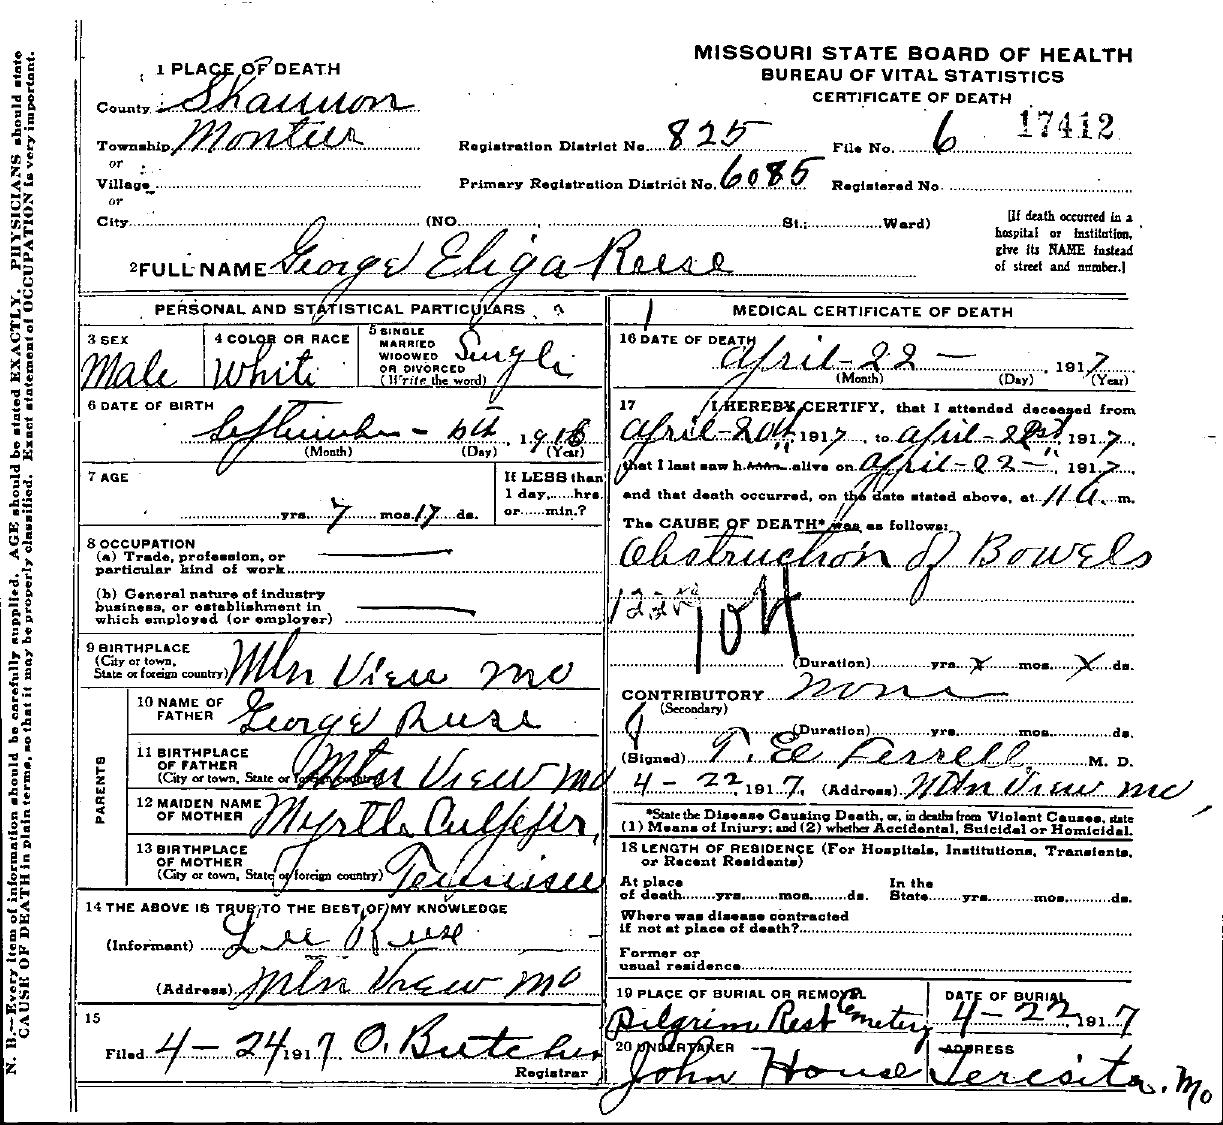 MISSOURI STATE BOARD OF HEALTH
BUREAU OF VITAL STATISTICS
CERTIFICATE OF DEATH
17412
1 PLACE OF DEATH
County Shannon
Township Montier Registration District No. 825 File No. 6
or
Village Primary Registration District No. 6085 Registered No.
or
City (NO. St.; Ward)
[If death occurred in a
hospital or institution,
give its NAME instead
of street and number.]
2 FULL NAME George Eliga Reese
PERSONAL AND STATISTICAL PARTICULARS
3 SEX
Male
4 COLOR OR RACE
White
5 SINGLE
MARRIED
WIDOWED
OR DIVORCED
(Write the word)
Single
6 DATE OF BIRTH
September - 6th, 1916
(Month) (Day) (Year)
7 AGE
yrs. 7 mos. 17 ds.
If LESS than
1 day,......hrs.
or......min.?
8 OCCUPATION
(a) Trade, profession, or
particular kind of work
(b) General nature of industry
business, or establishment in
which employed (or employer)
9 BIRTHPLACE
(City or town,
State or foreign country) Mtn View Mo
PARENTS
10 NAME OF
FATHER George Reese
11 BIRTHPLACE
OF FATHER
(City or town, State or foreign country) Mtn View Mo
12 MAIDEN NAME
OF MOTHER Myrtle Culpefer,
13 BIRTHPLACE
OF MOTHER
(City or town, State or foreign country) Tennissee
14 THE ABOVE IS TRUE TO THE BEST OF MY KNOWLEDGE
(Informant) Lee Reese
(Address) Mtn View Mo
15
Filed 4-24 1917 O. Butcher
Registrar
MEDICAL CERTIFICATE OF DEATH
16 DATE OF DEATH
April-22-, 1917
(Month) (Day) (Year)
17 I HEREBY CERTIFY, that I attended deceased from
April-20th, 1917, to April-22st, 1917,
that I last saw h alive on April-22-, 1917,
and that death occurred, on the date stated above, at 11 a. m.
The CAUSE OF DEATH* was as follows:
Obstruction of Bowels
104
(Duration) yrs. x mos. x ds.
CONTRIBUTORY None
(Secondary)
(Duration) yrs. mos. ds.
(Signed) T. E. Ferrell, M. D.
4-22, 1917. (Address) Mtn View Mo,
*State the Disease Causing Death, or, in deaths from Violent Causes, state
(1) Means of Injury; and (2) whether Accidental, Suicidal or Homicidal.
18 LENGTH OF RESIDENCE (For Hospitals, Institutions, Transients,
or Recent Residents)
At place In the
of death......yrs......mos......ds. State......yrs......mos......ds.
Where was disease contracted
if not at place of death?
Former or
usual residence
19 PLACE OF BURIAL OR REMOVAL
Pilgrim Rest Cemetery
DATE OF BURIAL
4-22, 1917
20 UNDERTAKER
John House
ADDRESS
Teresita. Mo
N. B.—Every item of information should be carefully supplied. AGE should be stated EXACTLY. PHYSICIANS should state
CAUSE OF DEATH in plain terms, so that it may be properly classified. Exact statement of OCCUPATION is very important.